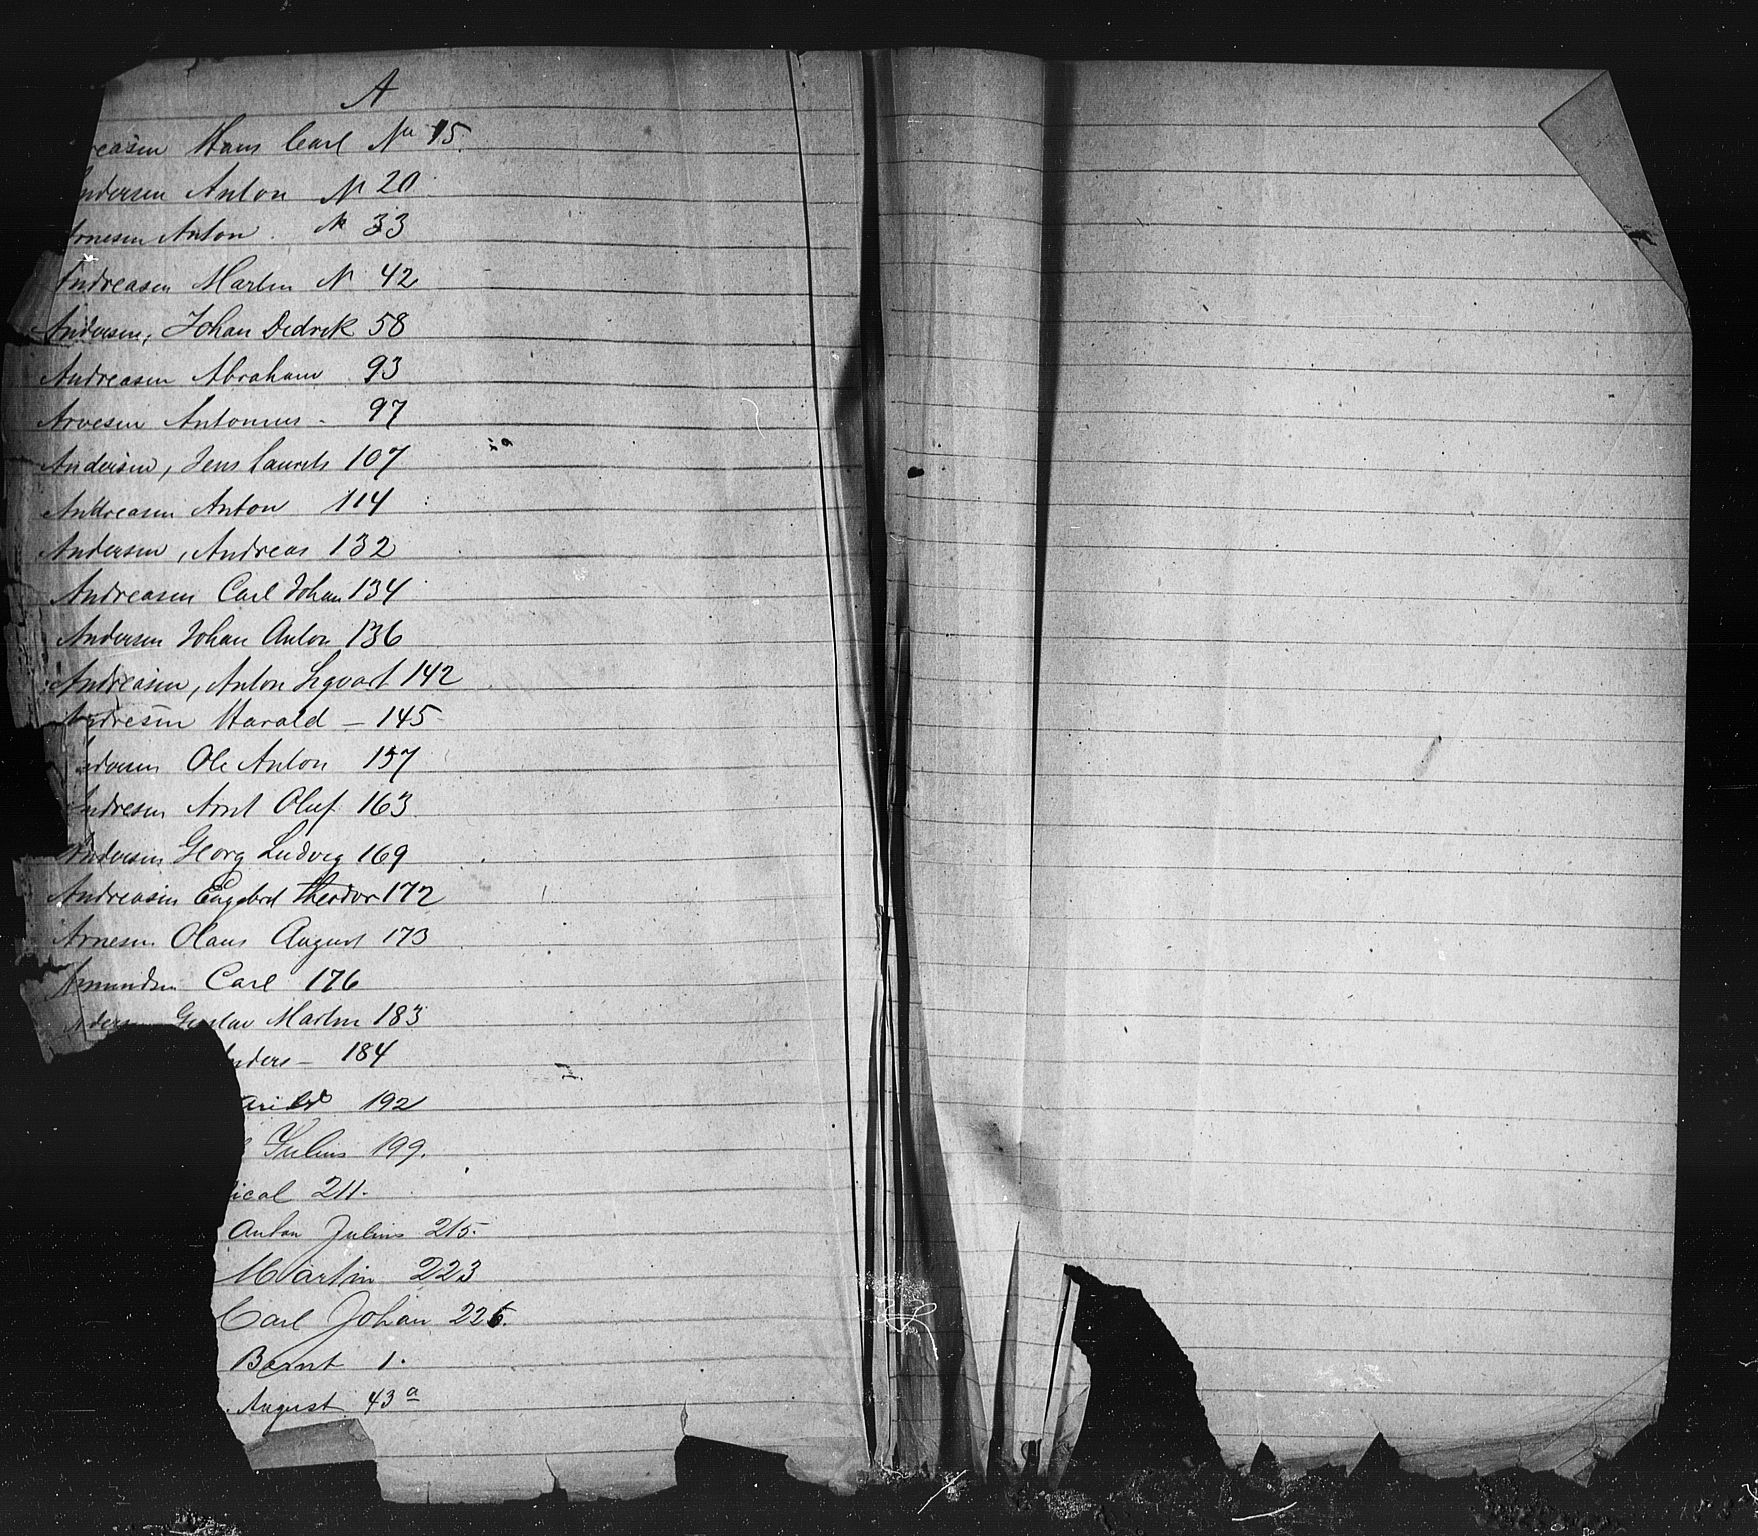 A
reasen Hans Carl No 15.
ndersen Anton N 20
Arnesen Anton. N 33
Andreasen Martin N 42
Andersen, Johan Dedrek 58
Andreasen Abraham 93
Arvesen Antonius - 97
Andersen, Jens Laurits 107
Andreasen Anton 114
Andersen, Andreas 132
Andreasen Carl Johan 134
Andersen Johan Anton 136
Andreasen, Anton Sigvart 142
Andresen Harald - 145
ndersen Ole Anton 157
Andresen Arnt Oluf. 163
Andersen Georg Ludvig 169
Andreasen Engebret Theodor 172
Arnesen Olaus August 173
Amundsen Carl 176
ndersen Gustav Martin 183
Anders - 184
192
Julius 199.
ical 211.
Anton Julius 215.
Martin 223
Carl Johan 225.
Bernt 1.
August 43 a